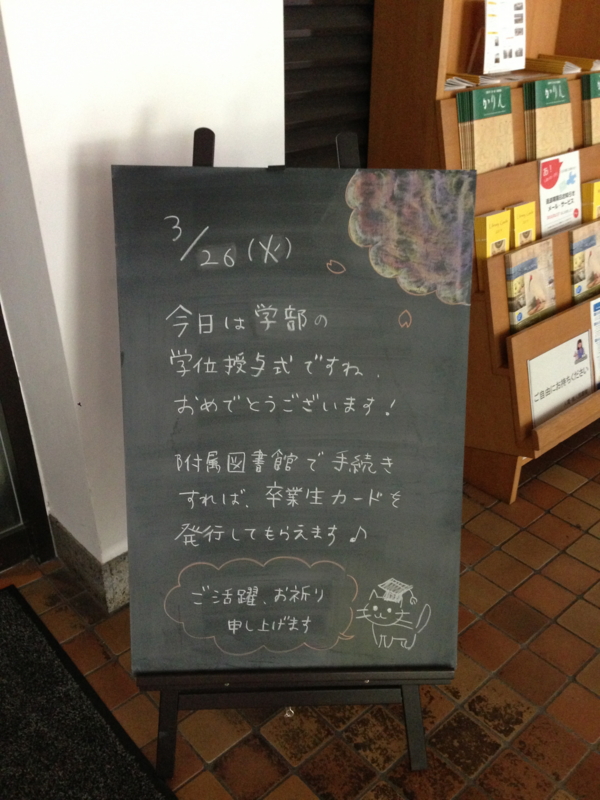 3/26(火)
今日は学部の
学位授与式ですね、
おめでとうございます!
附属図書館で手続き
すれば、卒業生カードを
発行してもらえます♪
ご活躍、お祈り
申し上げます
かりん
かりん
ご自由にお持ちください